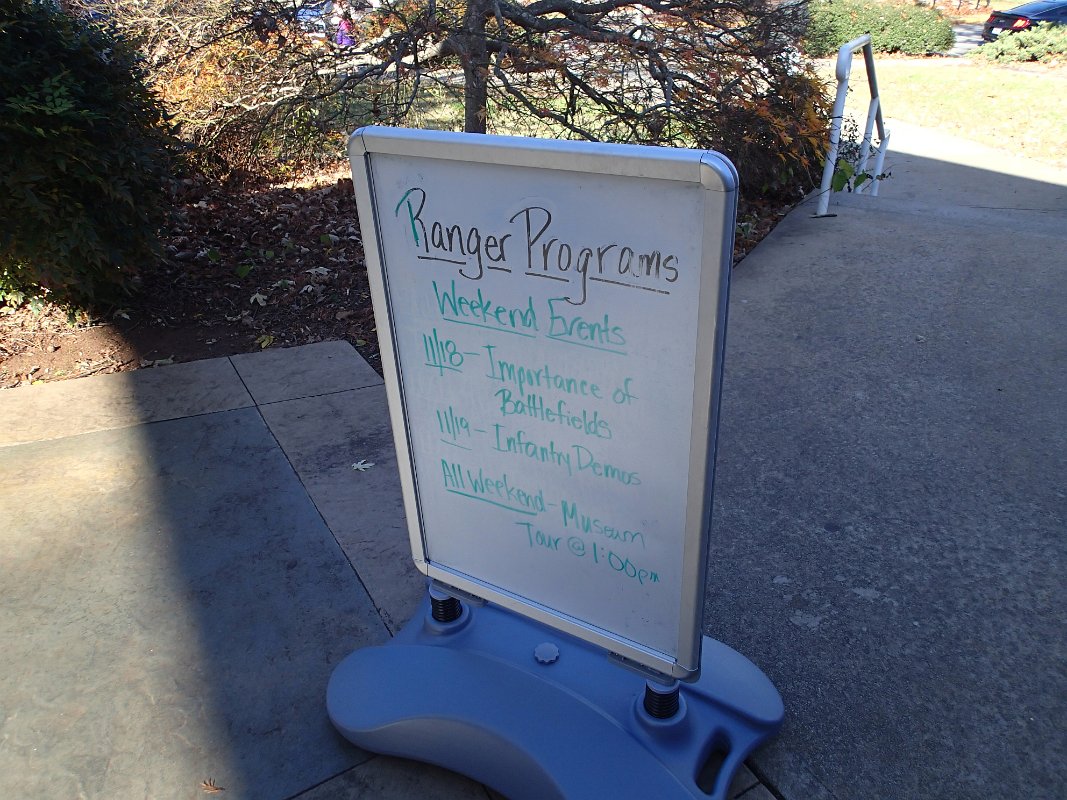 Ranger Programs
Weekend Events
11/18- Importance of
Battlefields
11/19- Infantry Demos
All Weekend- Museum
Tour @ 1:00pm